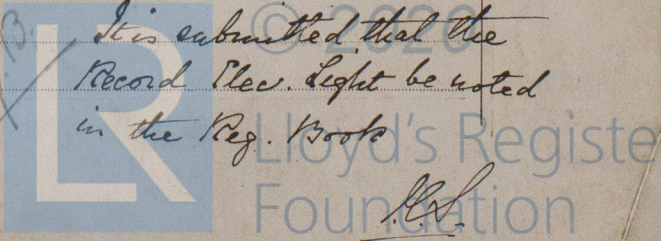 It is submitted that the
Record Elec. Light be noted
in the Reg. Book
J.S.
© 2020
LR
Lloyd's Registe
Foundation